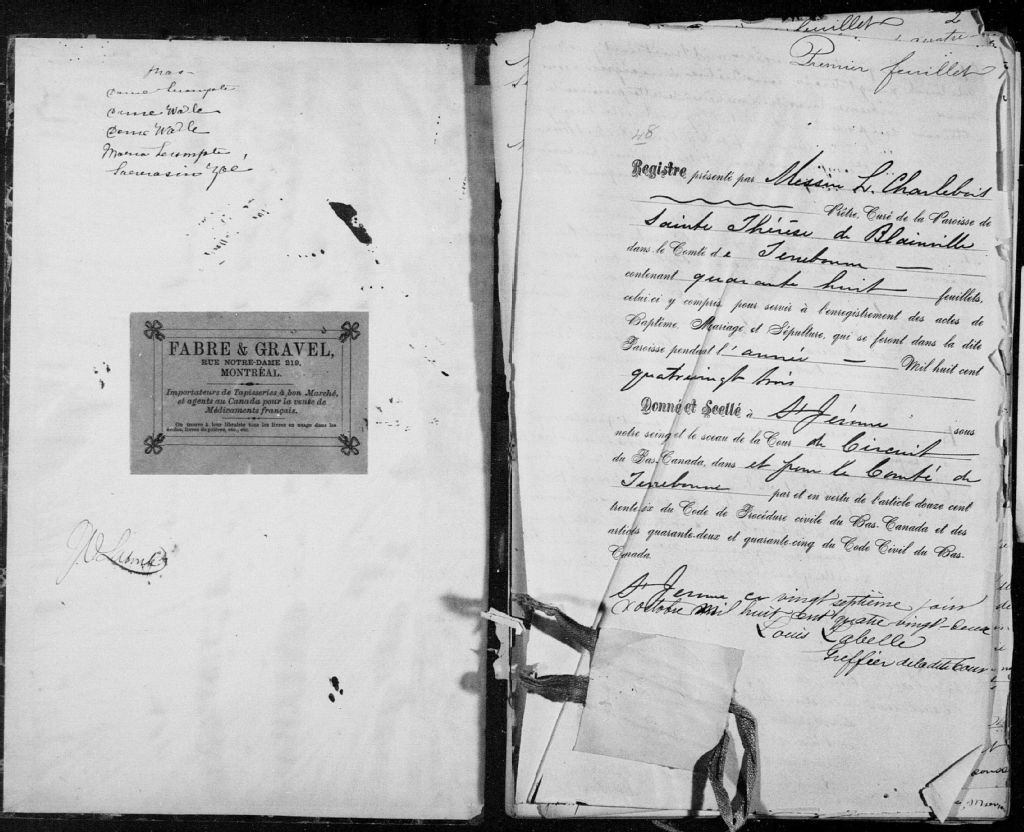 Dame Lecompte
Dame
Dame
Maria Lecompte
FABRE & GRAVEL,
RUE NOTRE-DAME 219,
MONTRÉAL.
Importateurs de Tapisseries à bon Marché,
et agents au Canada pour la vente de
Médicaments français.
On trouve à leur librairie tous les livres en usage dans les
écoles, livres de prières, etc., etc.
feuillet 2
quatre
Premier feuillet
48
Registre présenté par Messire L. Charlebois
Prêtre, Curé de la Paroisse de
Sainte Thérèse de Blainville
dans le Comté de Terrebonne
contenant quarante huit feuillets,
celui-ci y compris, pour servir à l'enregistrement des actes de
Baptême, Mariage et Sépulture, qui se feront dans la dite
Paroisse pendant l'année Mil huit cent
quatrevingt trois
Donné et Scellé à St Jérôme sous
notre seing et le sceau de la Cour de Circuit
du Bas-Canada, dans et pour le Comté de
Terrebonne par et en vertu de l'article douze cent
trente-six du Code de Procédure civile du Bas-Canada et des
articles quarante-deux et quarante-cinq du Code Civil du Bas-
Canada.
St Jérôme ce vingt septième jour
d'octobre mil huit cent quatre vingt-deux
Louis Labelle
Greffier de ladite Cour